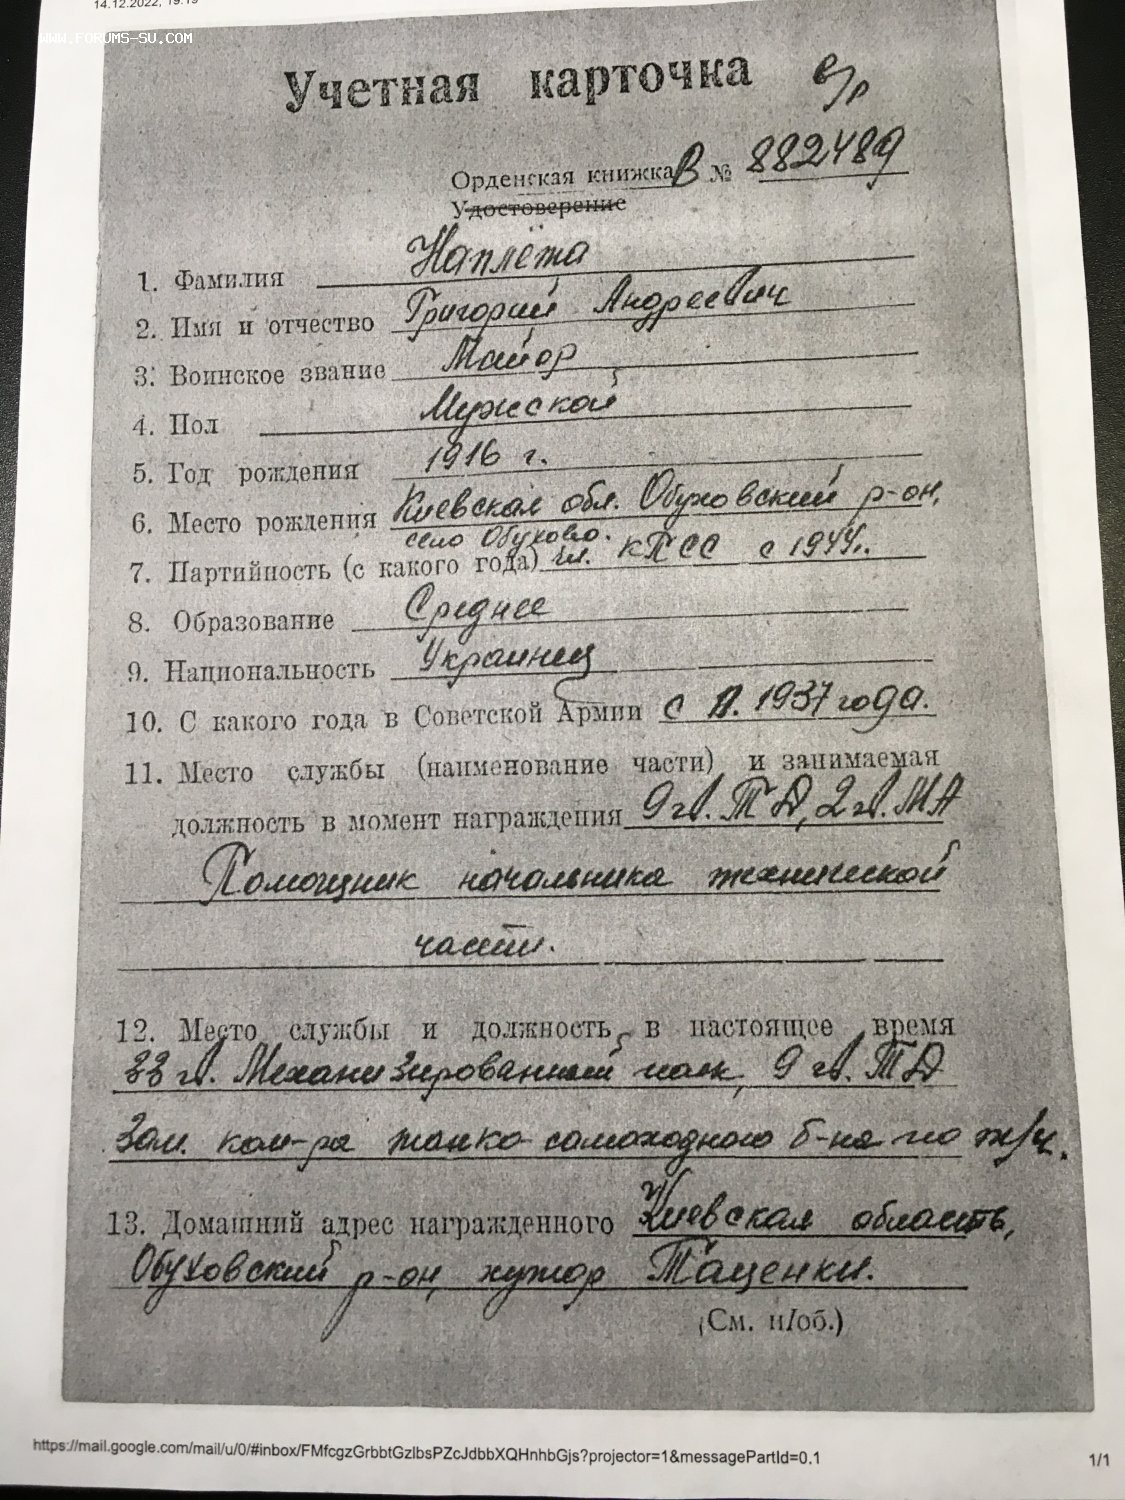 14.12.2022, 19:19
WWW.FORUMS-SU.COM
Учетная карточка
Орденская книжка В № 882489
Удостоверение
1. Фамилия Наплёта
2. Имя и отчество Григорий Андреевич
3. Воинское звание Майор
4. Пол Мужской
5. Год рождения 1916 г.
6. Место рождения Киевская обл. Обуховский р-он,
село Обухово.
7. Партийность (с какого года) чл. КПСС с 1944г.
8. Образование Среднее
9. Национальность Украинец
10. С какого года в Советской Армии с 1937 года.
11. Место службы (наименование части) и занимаемая
должность в момент награждения 9 гв. ТД, 2 гв. МА
Помощник начальника технической
части.
12. Место службы и должность в настоящее время
33 гв. Механизированный полк, 9 гв. ТД
Зам. ком-ра танко-самоходного б-на по т/ч.
13. Домашний адрес награжденного Киевская область,
Обуховский р-он, хутор Таценки.
(См. н/об.)
https://mail.google.com/mail/u/0/#inbox/FMfcgzGrbbtGzlbsPZcJdbbXQHnhbGjs?projector=1&messagePartId=0.1
1/1